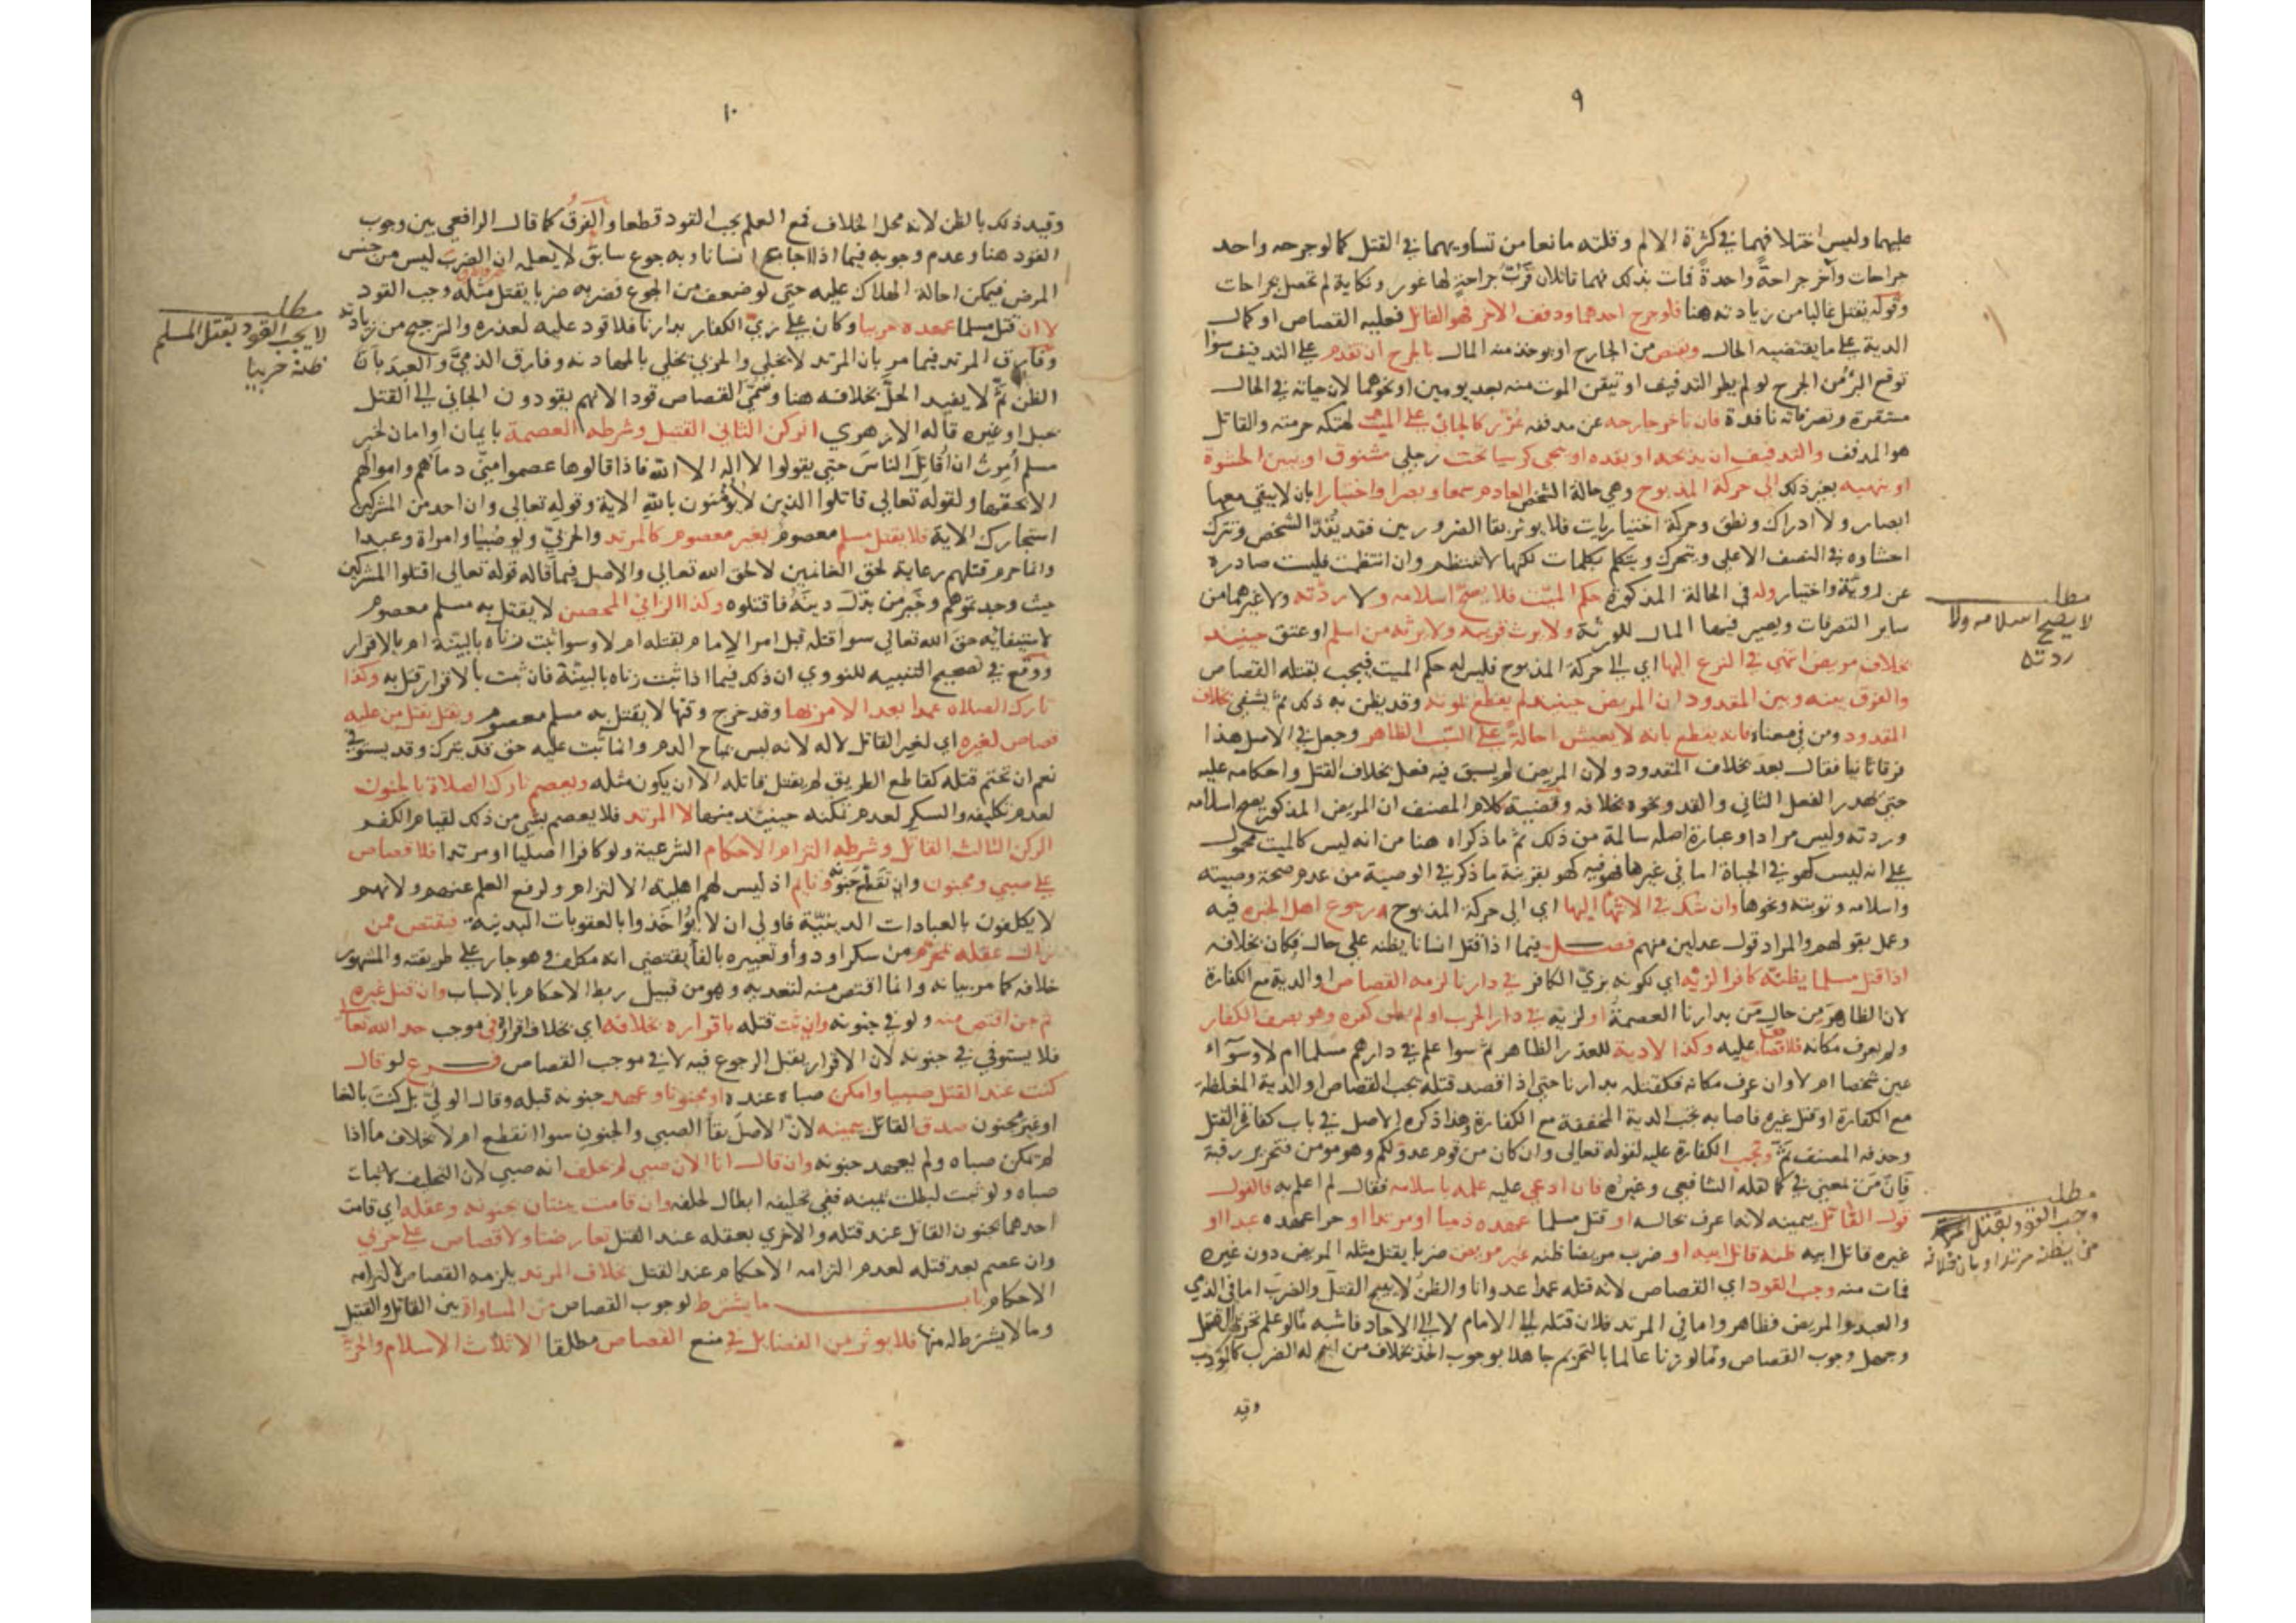 ٩
عليهما وليس اختلافهما في كثرة الالم وقلته مانعا من تساويهما في القتل كما لو جرحه واحد
جراحات وآخر جراحة واحدة فمات بذلك فهما قاتلان فرب جراحة لها غور ونكاية لم تحصل بجراحات
وقوله يقتل غالبا من زيادته هنا فلو جرح احدهما ودفف الاخر فهو القاتل فعليه القصاص او كمال
الدية على ما يقتضيه الحال ويقتص من الجارح او يوخذ منه المال بالجرح ان تقدم على التدفيف سوا
توقع البرء من الجرح لو لم يطر التدفيف او تيقن الموت منه بعد يومين او نحوهما لان حياته في الحال
مستقرة وتصرفاته نافذة فان تاخر جارحه عن مدففه عزر كالجاني على الميت لهتكه حرمته والقاتل
هو المدفف والتدفيف ان يذبحه او يقده او ينحي كرسيا تحت رجلي مشنوق او يبين الحشوة
او ينهيه بغير ذلك الى حركة المذبوح وهي حالة الشخص العادم سمعا وبصرا واختيارا بان لا يبقى معها
ابصار ولا ادراك ونطق وحركة اختياريات فلا يوثر بقا الضروريين فقد يقد الشخص وتترك
احشاوه في النصف الاعلى ويتحرك ويتكلم بكلمات لكنها لا تنتظم وان انتظمت فليست صادرة
عن روية واختيار وله في الحالة المذكورة حكم الميت فلا يصح اسلامه ولا ردته ولا غيرهما من
ساير التصرفات ويصير فيها المال للورثة ولا يرث قريبه ولا يرثه من اسلم او عتق حينيذ
بخلاف مريض انتهى في النزع اليها اي الى حركة المذبوح فليس له حكم الميت فيجب بقتله القصاص
والفرق بينه وبين المقدود ان المريض حينيذ لم يقطع بموته وقد يظن به ذلك ثم يشفى بخلاف
المقدود ومن في معناه فانه يقطع بانه لا يعيش احالة على السبب الظاهر وجعل في الاصل هذا
فرقا ثانيا فقال بعد بخلاف المقدود ولان المريض لم يسبق فيه فعل بخلاف القتل واحكامه عليه
حتى يهدر الفعل الثاني والقد ونحوه بخلافه وقضية كلام المصنف ان المريض المذكور يصح اسلامه
وردته وليس مرادا وعبارة اصله سالمة من ذلك ثم ما ذكراه هنا من انه ليس كالميت محمول
على انه ليس كهو في الجناية اما في غيرها فهو فيه كهو بقرينة ما ذكر في الوصية من عدم صحة وصيته
واسلامه وتوبته ونحوها وان شك في الانتها اليها اي الى حركة المذبوح رجوع اهل الخبرة فيه
وعمل بقولهم والمراد قول عدلين منهم فصل فيما اذا قتل انسانا يظنه على حال فكان بخلافه
اذا قتل مسلما يظنه كافرا لزيه اي كونه بزي الكافر في دارنا لزمه القصاص او الدية مع الكفارة
لان الظاهر من حال من بدارنا العصمة او لزيه في دار الحرب او لم يظن كفره وهو بصف الكفار
ولم يعرف مكانه فلا قصاص عليه وكذا لا دية للعذر الظاهر ثم سوا علم في دارهم مسلما ام لا وسوآء
عين شخصا ام لا وان عرف مكانه فكقتله بدارنا حتى اذا قصد قتله يجب القصاص او الدية المغلظة
مع الكفارة او قتل غيره فاصابه تجب الدية المخففة مع الكفارة وهذا ذكره الاصل في باب كفارة القتل
وحذفه المصنف ثم وتجب الكفارة عليه لقوله تعالى وان كان من قوم عدو لكم وهو مومن فتحرير رقبة
فان من بمعنى في كما نقله الشافعي وغيره فان ادعي عليه علمه باسلامه فقال لم اعلم به فالقول
قول القاتل بيمينه لانه اعرف بحاله او قتل مسلما عهده ذميا او مرتدا او حرا عهده عبدا او
غيره قاتل ابيه ظنه قاتل ابيه او ضرب مريضا ظنه غير مريض ضربا يقتل مثله المريض دون غيره
فمات منه وجب القود اي القصاص لانه قتله عمدا عدوانا والظن لا يبيح القتل والضرب اما في الذمي
والعبد والمريض فظاهر واما في المرتد فلان قتله الى الامام لا الى الاحاد فاشبه ما لو علم تحريم القتل
وجهل وجوب القصاص وكما لو زنا عالما بالتحريم جاهلا بوجوب الحد بخلاف من ابيح له الضرب كالمودب
وقيد
مطلب
لا يصح اسلامه ولا
ردته
مطلب
وجب القود بقتل
من يظنه مرتدا وبان خلافه
١٠
وقيد ذلك بالظن لانه محل الخلاف فمع العلم يجب القود قطعا والفرق كما قال الرافعي بين وجوب
القود هنا وعدم وجوبه فيما اذا اجاع انسانا وبه جوع سابق لا يعلمه ان الضرب ليس من جنس
المرض فيمكن احالة الهلاك عليه حتى لو ضعف من الجوع فضربه ضربا يقتل مثله وجب القود
لا ان قتل مسلما عهده حربيا وكان على زي الكفار بدارنا فلا قود عليه لعذره والترجيح من زيادته
وفارق المرتد فيما مر بان المرتد لا يخلى والحربي يخلى بالمهادنة وفارق الذمي والعبد بان
الظن ثم لا يفيد الحل بخلافه هنا وسمي القصاص قودا لانهم يقودون الجاني الى القتل
بحبل او غيره قاله الازهري الركن الثاني القتيل وشرطه العصمة بايمان او امان لخبر
مسلم أمرت ان اقاتل الناس حتى يقولوا لا اله الا الله فاذا قالوها عصموا مني دماهم واموالهم
الا بحقها ولقوله تعالى قاتلوا الذين لا يؤمنون بالله الاية وقوله تعالى وان احد من المشركين
استجارك الاية فلا يقتل مسلم معصوم بغير معصوم كالمرتد والحربي ولو صبيا وامراة وعبدا
وانما حرم قتلهم رعاية لحق الغانمين لا لحق الله تعالى والاصل فيما قاله قوله تعالى اقتلوا المشركين
حيث وجدتموهم وخبر من بدل دينه فاقتلوه وكذا الزاني المحصن لا يقتل به مسلم معصوم
لاستيفائه حق الله تعالى سوا قتله قبل امر الامام بقتله ام لا وسوا ثبت زناه بالبينة ام بالاقرار
ووقع في تصحيح التنبيه للنووي ان ذلك فيما اذا ثبت زناه بالبينة فان ثبت بالاقرار قتل به وكذا
تارك الصلاة عمدا بعد الامر بها وقد خرج وقتها لا يقتل به مسلم معصوم ويقتل بقتل من عليه
قصاص لغيره اي لغير القاتل لا له لانه ليس بمباح الدم وانما ثبت عليه حق قد يترك وقد يستوفى
نعم ان تحتم قتله كقاطع الطريق لم يقتل قاتله الا ان يكون مثله ويعصم تارك الصلاة بالجنون
لعدم تكليفه والسكر لعدم تمكنه حينيذ منها لا المرتد فلا يعصم بشي من ذلك لقيام الكفر
الركن الثالث القاتل وشرطه التزام الاحكام الشرعية ولو كافرا اصليا او مرتدا فلا قصاص
على صبي ومجنون وان تقطع جنونه ونايم اذ ليس لهم اهلية الالتزام ولرفع القلم عنهم ولانهم
لا يكلفون بالعبادات الدينية فاولى ان لا يؤاخذوا بالعقوبات البدنية فيقتص ممن
زال عقله بمحرم من سكر او دواء وتعبيره بالفا يقتضي انه مكلف وهو جار على طريقته والمشهور
خلافه كما مر بيانه وانما اقتص منه لتعديه وهو من قبيل ربط الاحكام بالاسباب وان قتل غيره
ثم جن اقتص منه ولو في جنونه وان ثبت قتله باقراره بخلافه اي بخلاف اقراره في موجب حد الله تعالى
فلا يستوفى في جنونه لان الاقرار يقبل الرجوع فيه لا في موجب القصاص فرع لو قال
كنت عند القتل صبيا وامكن صباه عنده او مجنونا وعهد جنونه قبله وقال الولي بل كنت بالغا
او غير مجنون صدق القاتل بيمينه لان الاصل بقا الصبي والجنون سوا انقطع ام لا بخلاف ما اذا
لم يمكن صباه ولم يعهد جنونه وان قال انا الان صبي لم يحلف انه صبي لان التحليف لاثبات
صباه ولو ثبت لبطلت يمينه ففي تحليفه ابطال لحلفه وان قامت بينتان بجنونه وعقله اي قامت
احدهما بجنون القاتل عند قتله والاخرى بعقله عند القتل تعارضتا ولا قصاص على حربي
وان عصم بعد قتله لعدم التزامه الاحكام عند القتل بخلاف المرتد يلزمه القصاص لالتزامه
الاحكام باب ما يشترط لوجوب القصاص من المساواة بين القاتل والقتيل
وما لا يشترط له منها فلا يوثر من الفضايل في منع القصاص مطلقا الا ثلاث الاسلام والحرية
مطلب
لا يجب القود بقتل المسلم
ظنه حربيا